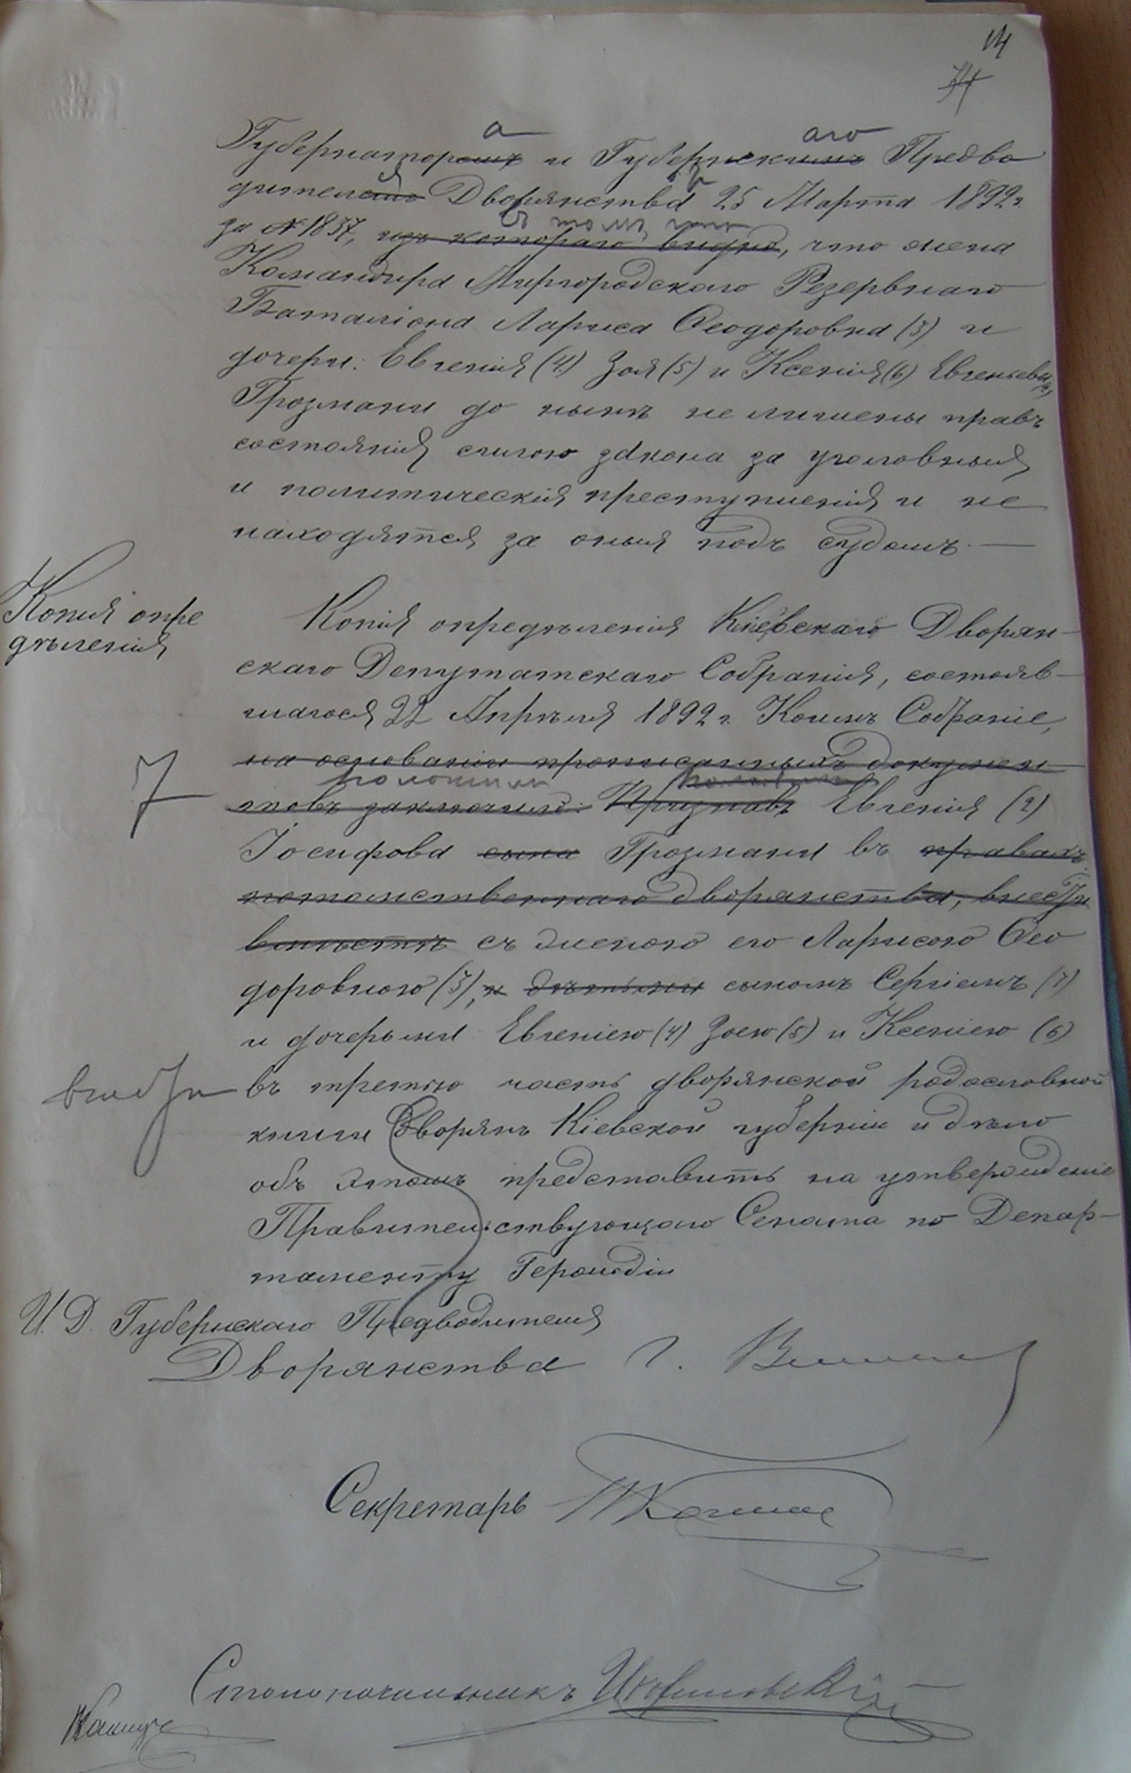 14
74
Губернаторомъ а и Губернскимъ аго Предво
дителемъ я Дворянства 25 Марта 1892 г.
за № 1857, изъ котораго видно, въ томъ что, что жена
Командира Миргородскаго Резервнаго
Баталіона Лариса Ѳеодоровна (3) и
дочери: Евгенія (4) Зоя (5) и Ксенія (6) Евгеньевны
Грозмани до нынѣ не лишены правъ
состоянія силою закона за уголовныя
и политическія преступленія и не
находятся за оныя подъ судомъ. —
Копія опре
дѣленія
Копія опредѣленія Кіевскаго Дворян-
скаго Депутатскаго Собранія, состояв-
шагося 22 Апрѣля 1892 г. Коимъ Собраніе,
на основаніи прописанныхъ докумен
положили
товъ заключило: Признавъ Евгенія (2)
7
Іосифова сына Грозмани въ правахъ
потомственнаго дворянства, внести
вмѣстѣ съ женою его Ларисою Ѳео
доровною (3), и дѣтьми сыномъ Сергіемъ (7)
и дочерьми Евгеніею (4) Зоею (5) и Ксеніею (6)
внести въ третью часть дворянской родословной
книги Дворянъ Кіевской губерніи и дѣло
объ этомъ представить на утвержденіе
Правительствующаго Сената по Депар-
таменту Герольдіи
И. Д. Губернскаго Предводителя
Дворянства
Секретарь
Столоначальникъ